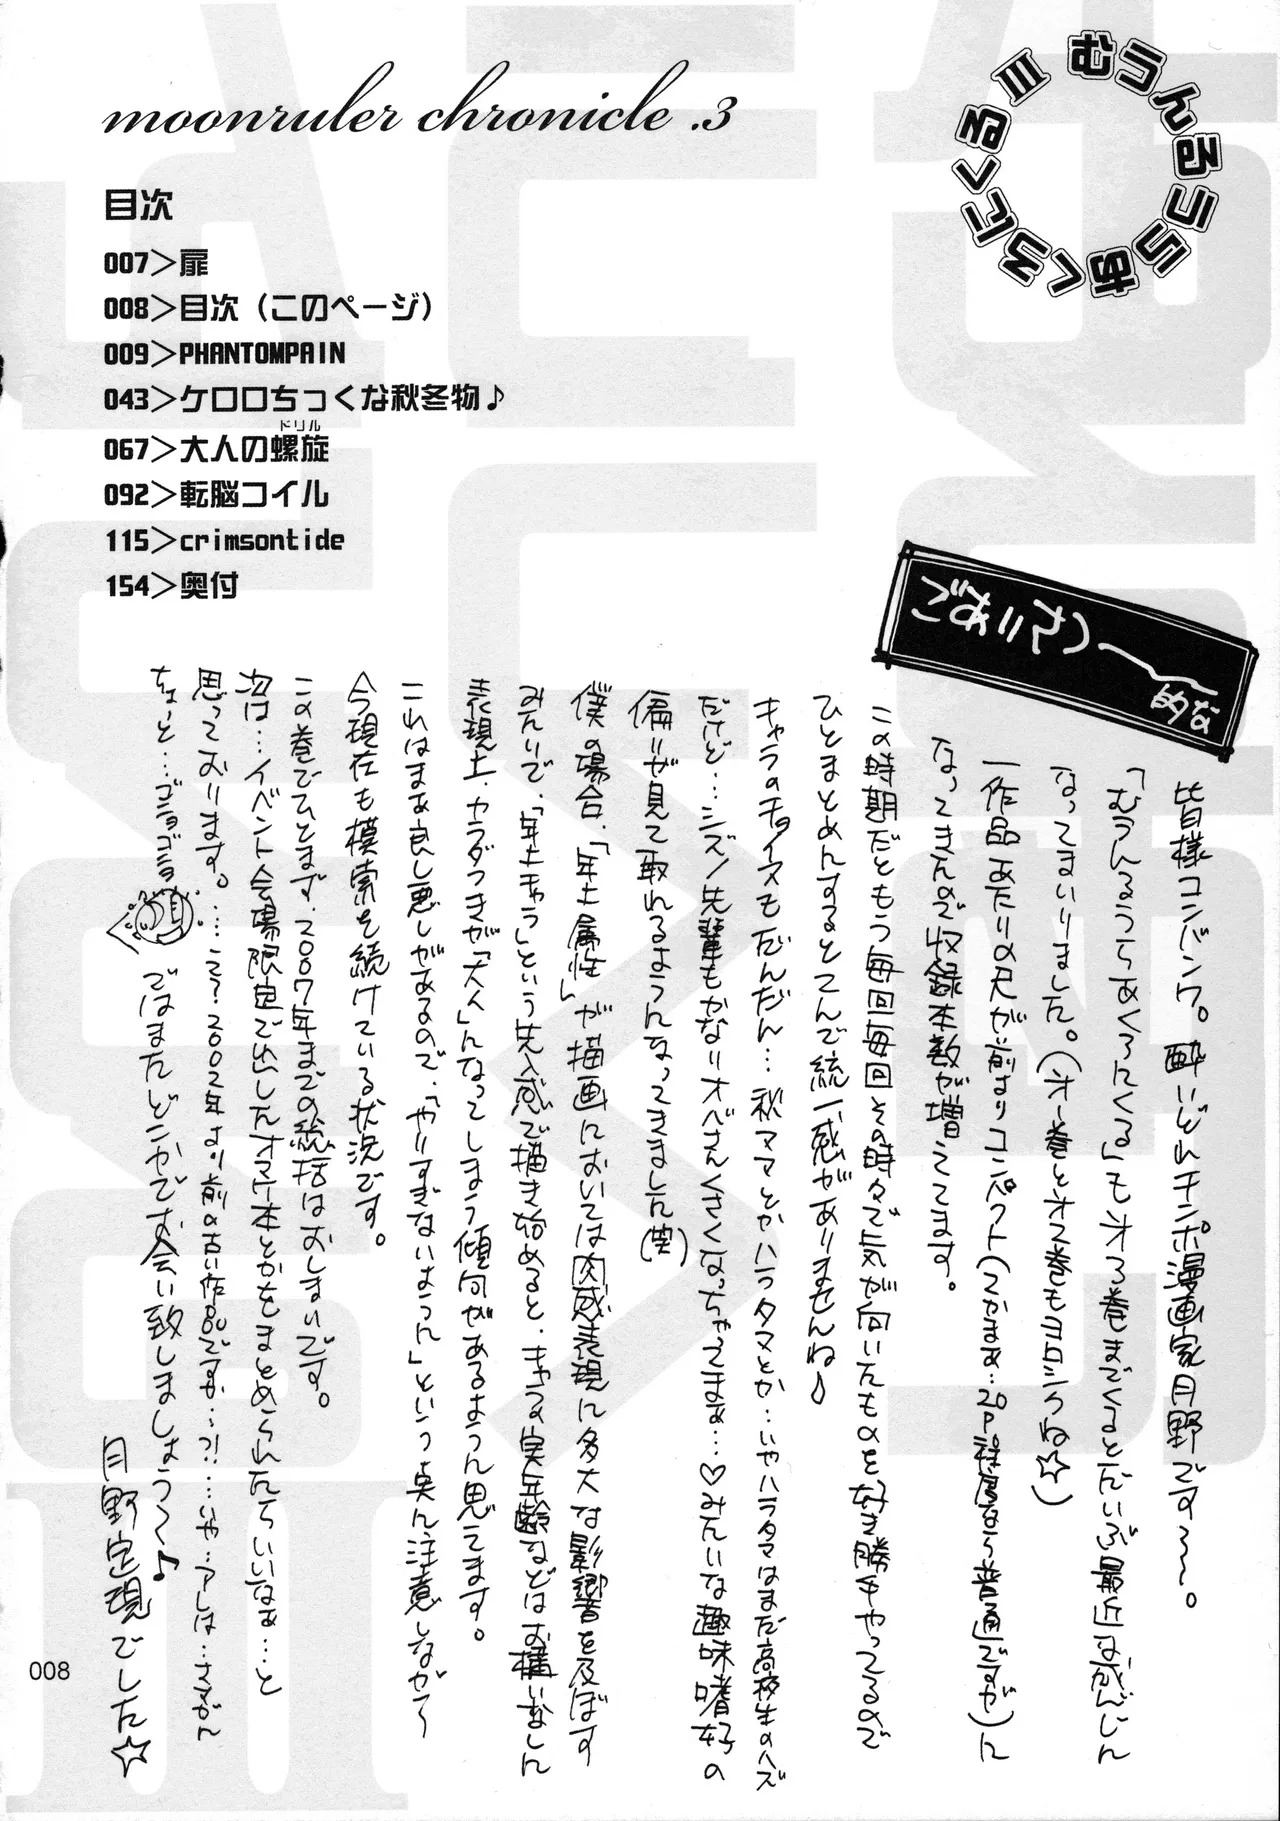 moonruler chronicle .3
むうんるうらあくろにくる III
目次
007＞扉
008＞目次（このページ）
009＞PHANTOMPAIN
043＞ケロロちっくな秋冬物♪
067＞大人の螺旋
ドリル
092＞転脳コイル
115＞crimsontide
154＞奥付
ごあいさつー
的な
皆様コンバンワ。酔いどれチンポ漫画家月野です〜〜。
「むうんるうらあくろにくる」もオ3巻までくるとだいぶ最近なかんじに
なってまいりました。(オ1巻とオ2巻もヨロシクね☆)
一作品あたりの尺が前よりコンパクト(つかまぁ…20P程度なら普通ですが)に
なってきたので収録本数が増えてます。
この時期だともう毎回毎回その時々で気が向いたものを好き勝手やってるので
ひとまとめにするとてんで統一感がありませんね♪
キャラのチョイスもだんだん…秋ママとかハラタマとか…いやハラタマはまだ高校生のハズ
だけど…シズノ先輩もかなりオバさんくさくなっちゃってまぁ…♡みたいな趣味嗜好の
偏りが見て取れるようになってきました(笑)
僕の場合、「年上属性」が描画においては肉感表現に多大な影響を及ぼす
みたいで、「年上キャラ」という先入感で描き始めると、キャラの実年齢などはお構いなしに
表現上、カラダつきが「大人」になってしまう傾向があるように思えてます。
これはまぁ良し悪しがあるので、「やりすぎないように」という点に注意しながら〜
今現在も模索を続けている状況です。
この巻でひとまず、2007年までの総括はおしまいです。
次は…イベント会場限定で出したオマケ本とかをまとめられたらいいなぁ…と
思っております。……え？2002年より前の古い作品ですか…?!…いや…アレは…
ちょっと…ゴニョゴニョ
ではまたどこかでお会い致しましょう〜♪
月野定規でした☆
008